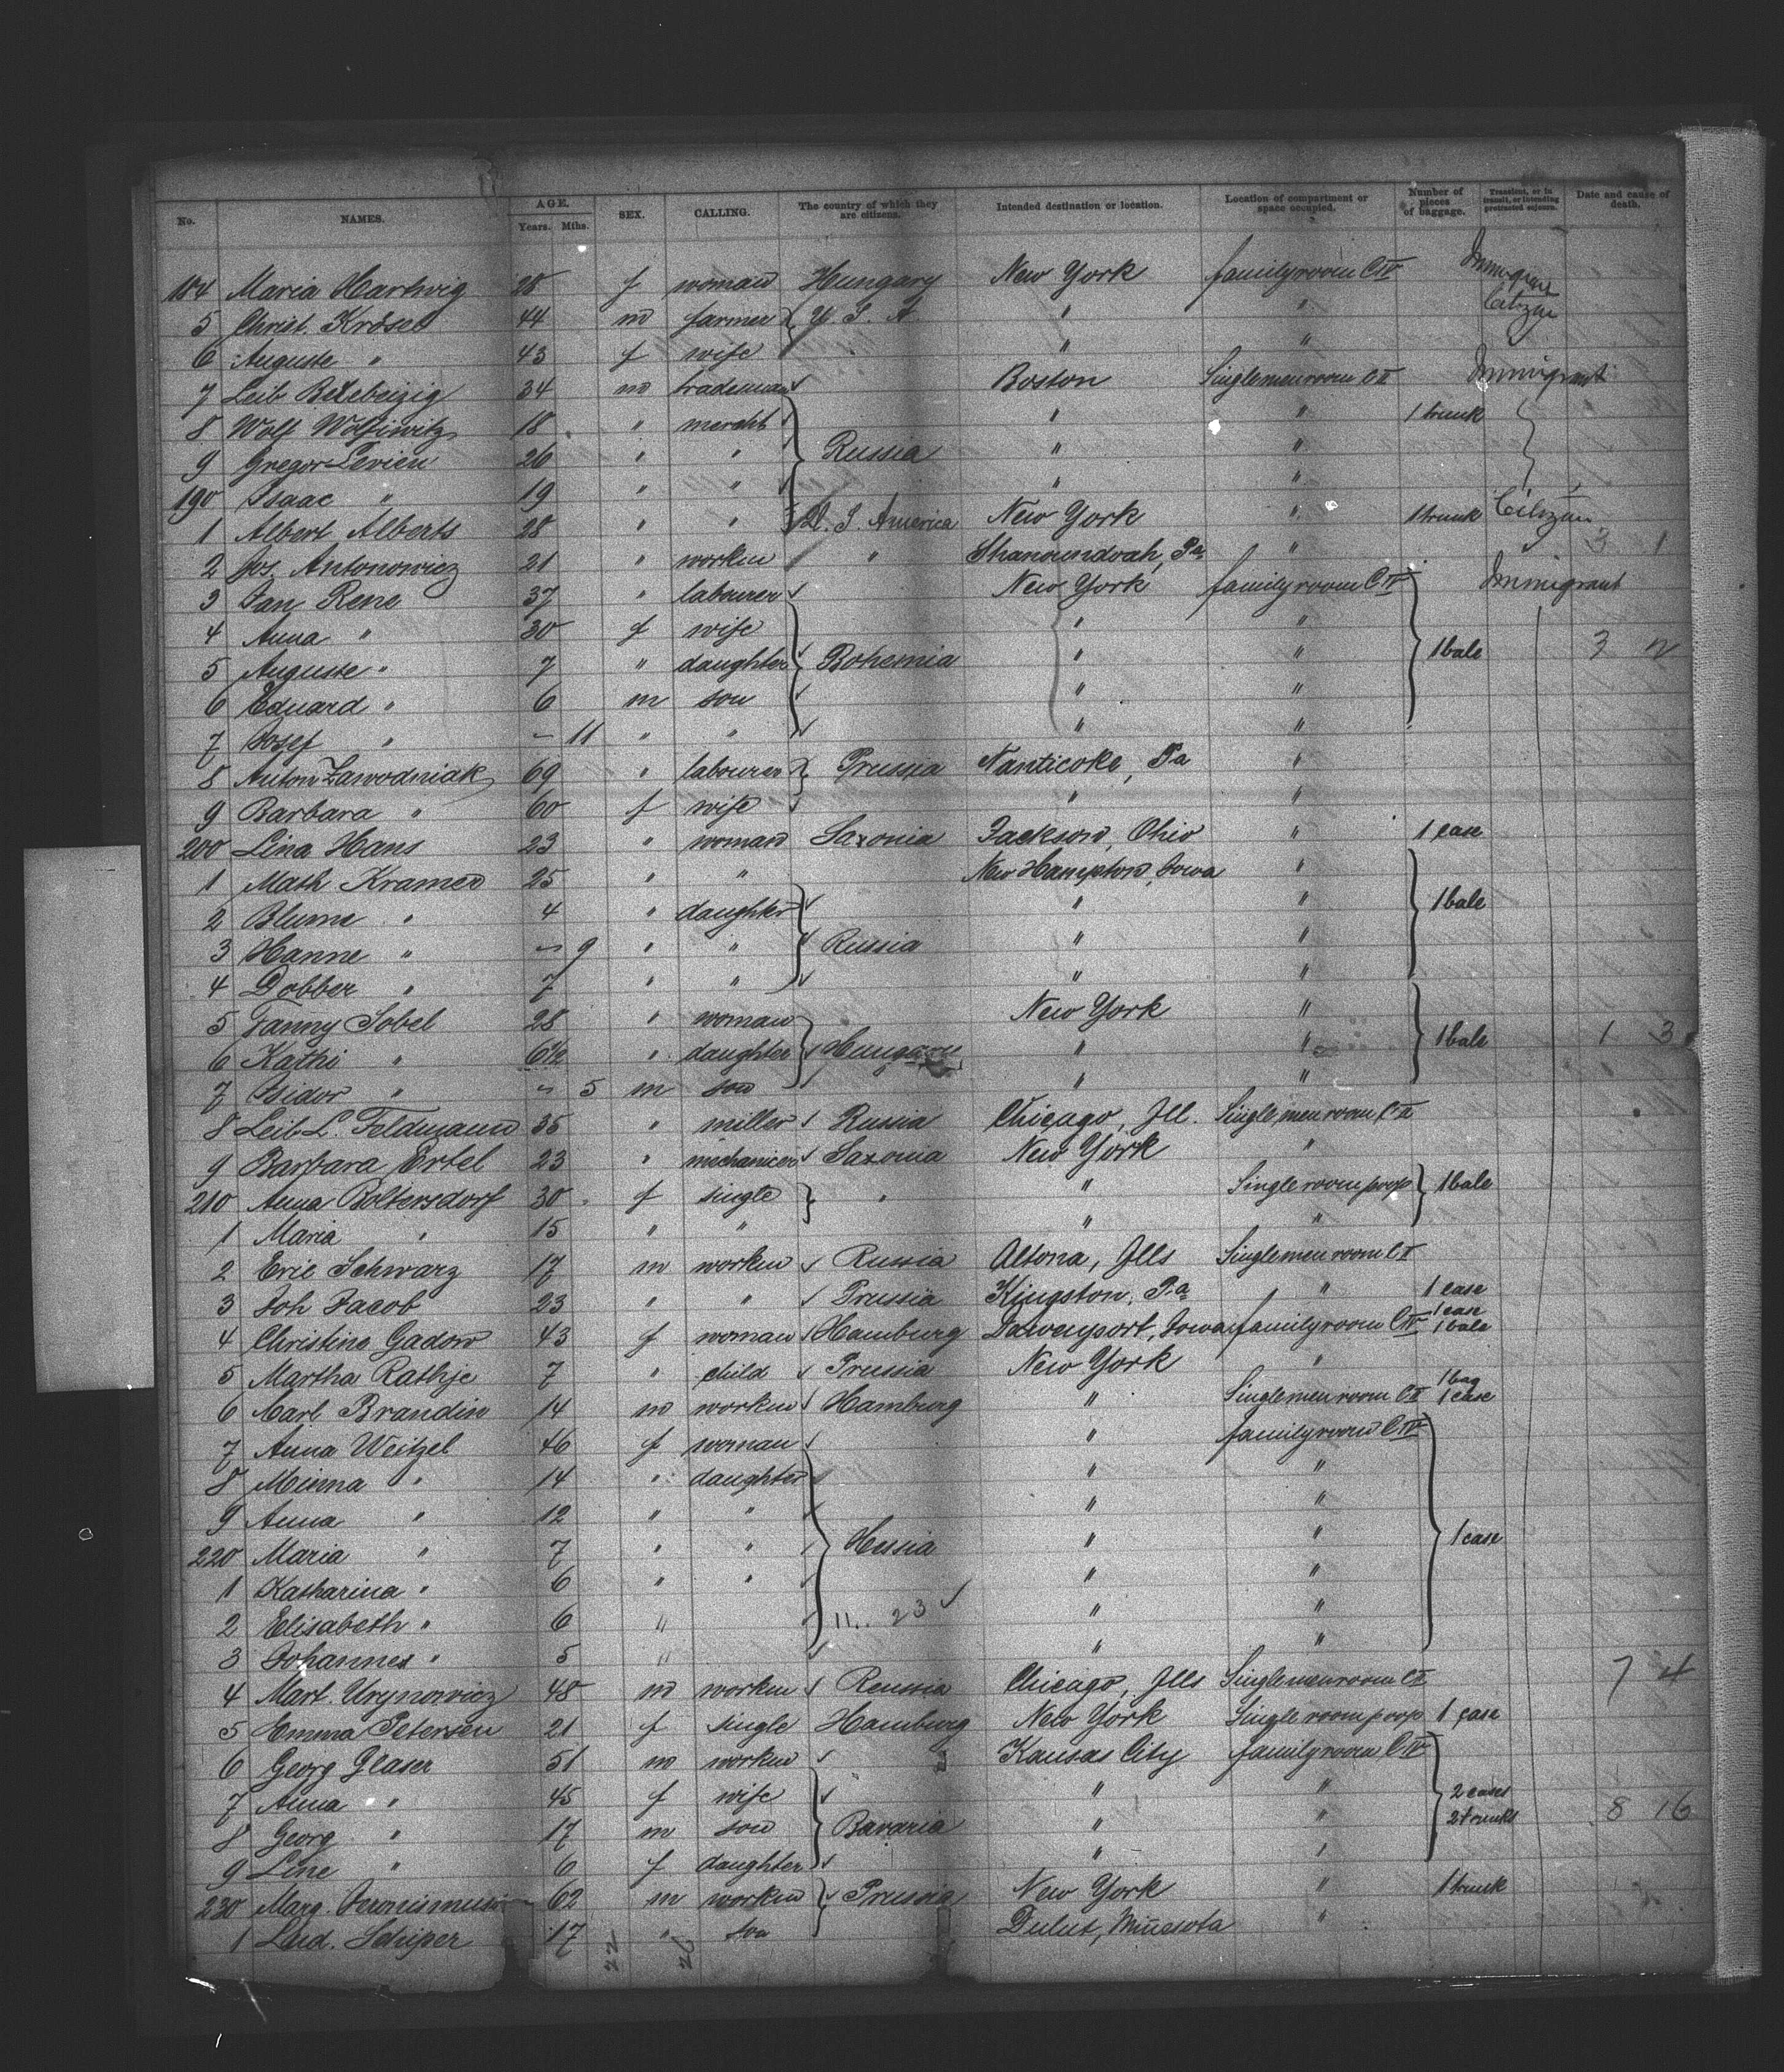 No. NAMES. AGE. Years. Mths. SEX. CALLING. The country of which they are citizens. Intended destination or location. Location of compartment or space occupied. Number of pieces of baggage. Transient, or in transit, or intending protracted sojourn. Date and cause of death.
184 Maria Hartwig 28 f woman Hungary New York family room C IV Immigrant
5 Christ. Kröset 44 m farmer U. S. A. " " Citizen
6 Auguste " 43 f wife " "
7 Leib 34 m tradesman Boston Single men room C II Immigrant
8 Wolf Wolfiwitz 18 " mercht " " 1 trunk
9 Gregor Levien 26 " " Russia " "
190 Isaac " 19 " " " "
1 Albert Alberts 28 " " U. S. America New York " 1 trunk Citizen
2 Jos. Antonowicz 21 " workm " Shanoundoah, Pa. " 3 1
3 Jan Rene 37 " labourer New York family room C IV Immigrant
4 Anna " 30 f wife " "
5 Auguste " 7 " daughter Bohemia " " 1 bale 3 2
6 Eduard " 6 m son " "
7 Josef " – 11 " " " "
8 Anton Zawodniak 69 " labourer Prussia Nanticoke, Pa "
9 Barbara " 60 f wife " "
200 Lina Hans 23 " woman Saxonia Jackson, Ohio " 1 case
1 Math Kramer 25 " " New Hampton, Iowa "
2 Blume " 4 " daughter " " 1 bale
3 Hanne " – 9 " " Russia " "
4 Dobber " 7 " " " "
5 Fanny Sobel 28 " woman New York "
6 Kathi " 6½ " daughter Hungary " " 1 bale 1 3
7 Isidor " – 5 m son " "
8 Leib L. Feldmann 35 " miller Russia Chicago, Ill. Single men room C II
9 Barbara Ertel 23 " mechanicer Saxonia New York "
210 Anna Boltersdorf 30 f single " " Single room poop 1 bale
1 Maria " 15 " " " "
2 Eric Schwarz 17 m workm Russia Altona, Ills Single men room C II
3 Joh Jacob 23 " " Prussia Kingston, Pa " 1 case
4 Christine Gadow 43 f woman Hamburg Davenport, Iowa family room C IV 1 case 1 bale
5 Martha Rathje 7 " child Prussia New York "
6 Carl Brandin 14 m workm Hamburg " Single men room C II 1 bag 1 case
7 Anna Weitzel 46 f woman " family room C IV
8 Minna " 14 " daughter " "
9 Anna " 12 " " " "
220 Maria " 7 " " Hessia " " 1 case
1 Katharina " 6 " " " "
2 Elisabeth " 6 " 11.. 23 " "
3 Johannes " 5 " " "
4 Mart. Urynowicz 48 m workm Russia Chicago, Ills Single men room C II 7 4
5 Emma Petersen 21 f single Hamburg New York Single room poop 1 case
6 Georg Glaser 51 m workm Kansas City family room C IV
7 Anna " 45 f wife " " 2 cases
8 Georg " 17 m son Bavaria " " 2 trunks 8 16
9 Line " 6 f daughter " "
230 Marg. 62 m workm Prussia New York " 1 trunk
1 Lud. Schiper 17 " son Dulut, Minnesota "
22 26